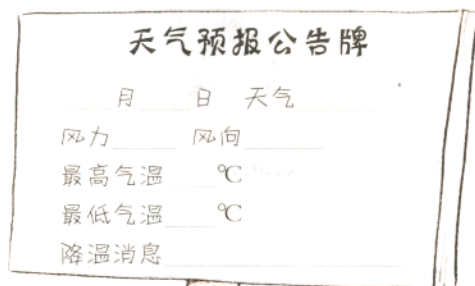 天气预报公告牌
____月____日 天气______
风力____ 风向______
最高气温___℃
最低气温___℃
降温消息______________